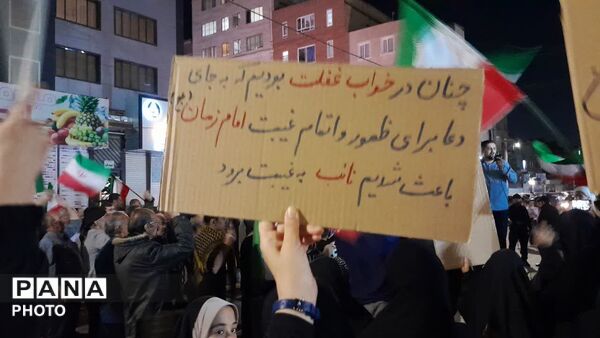 چنان در خواب غفلت بودیم که به جای
دعا برای ظهور و اتمام غیبت امام زمان (عج)
باعث شدیم نائب به غیبت برود
PANA
PHOTO